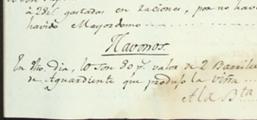 à 28 rl gastados en raciones, por no haver
havido Mayordomo
Havonos.
En dho. dia, los son 30 ps. valor de 2 Barriles
de Aguardiente que produjo la viña
A la Bta